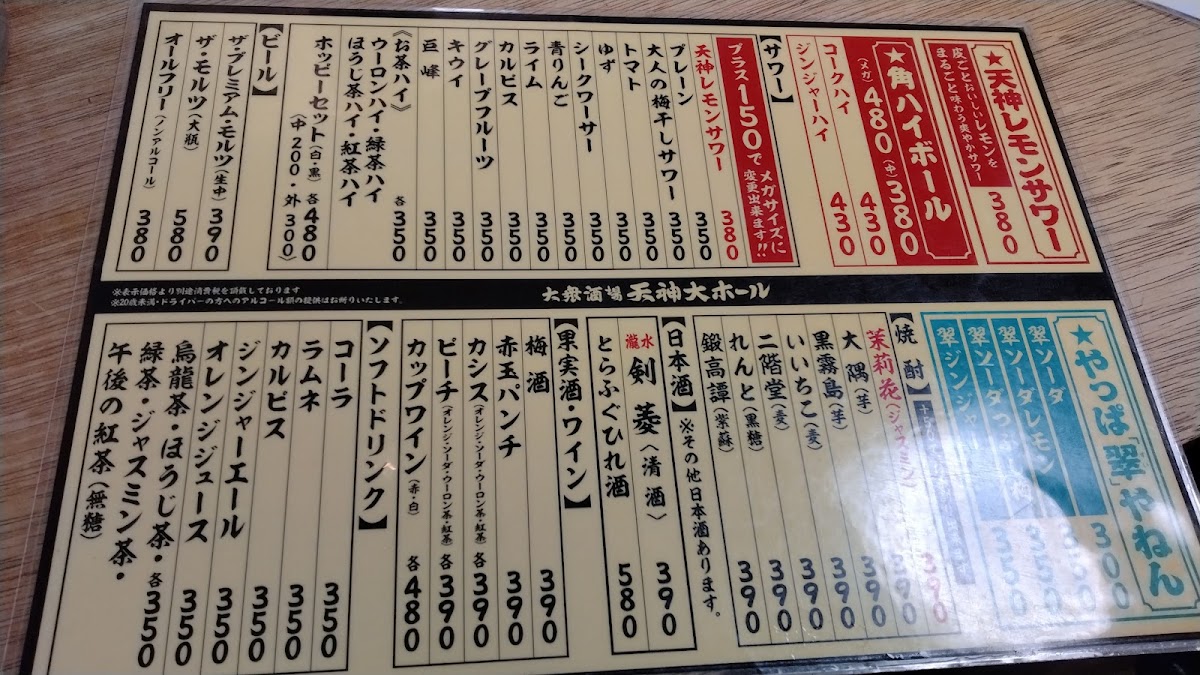 ★天神レモンサワー
皮ごとおいしいレモンを
まるごと味わう爽やかサワー
380
★角ハイボール
(メガ)480(中)380
コークハイ 430
ジンジャーハイ 430
【サワー】
プラス150で
メガサイズに
変更出来ます!!
天神レモンサワー 380
プレーン 350
大人の梅干しサワー 350
トマト 350
ゆず 350
シークワーサー 350
青りんご 350
ライム 350
カルピス 350
グレープフルーツ 350
キウイ 350
巨峰 350
《お茶ハイ》
ウーロンハイ・緑茶ハイ
ほうじ茶ハイ・紅茶ハイ
各350
ホッピーセット(白・黒) 各480
(中200・外300)
【ビール】
ザ・プレミアム・モルツ(生中) 390
ザ・モルツ(大瓶) 580
オールフリー(ノンアルコール) 380
※表示価格より別途消費税を頂戴しております
※20歳未満・ドライバーの方へのアルコール類の提供はお断りいたします。
大衆酒場 天神大ホール
★やっぱ「翠」やねん
翠ソーダ 300
翠ソーダレモン 350
翠ソーダ 350
翠ジンジャー 350
【焼酎】
茉莉花(ジャスミン) 390
大隅(芋) 390
黒霧島(芋) 390
いいちこ(麦) 390
二階堂(麦) 390
れんと(黒糖) 390
鍛高譚(紫蘇) 390
【日本酒】※その他日本酒あります。
瀧水 剣菱(清酒) 390
とらふぐひれ酒 580
【果実酒・ワイン】
梅酒 390
赤玉パンチ 390
カシス(オレンジ・ソーダ・ウーロン茶・紅茶) 各390
ピーチ(オレンジ・ソーダ・ウーロン茶・紅茶) 各390
カップワイン(赤・白) 各480
【ソフトドリンク】
コーラ 350
ラムネ 350
カルピス 350
ジンジャーエール 350
オレンジジュース 350
烏龍茶・ほうじ茶・
緑茶・ジャスミン茶・
午後の紅茶(無糖)
各350